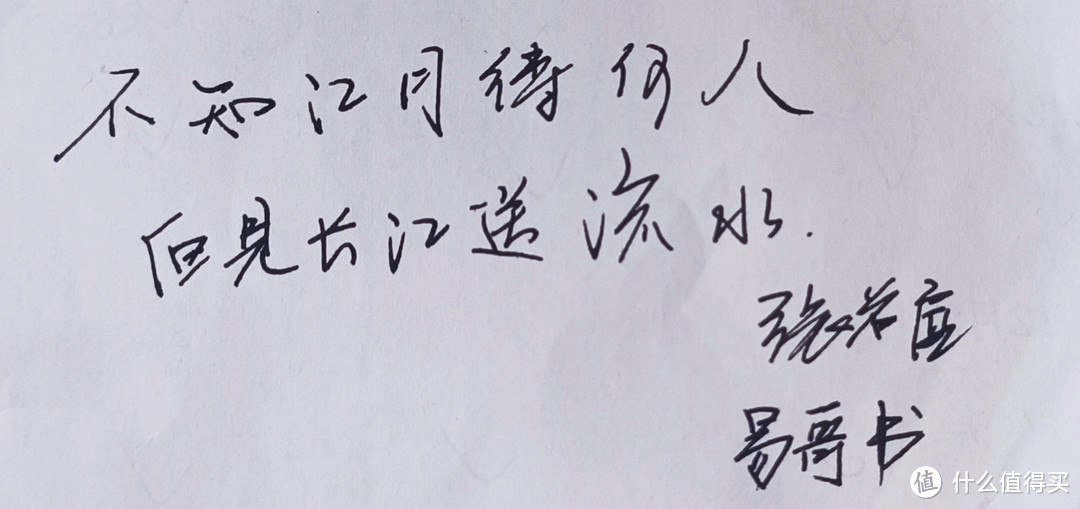 不知江月待何人
但見长江送流水.
张若虚
易哥书
值 什么值得买